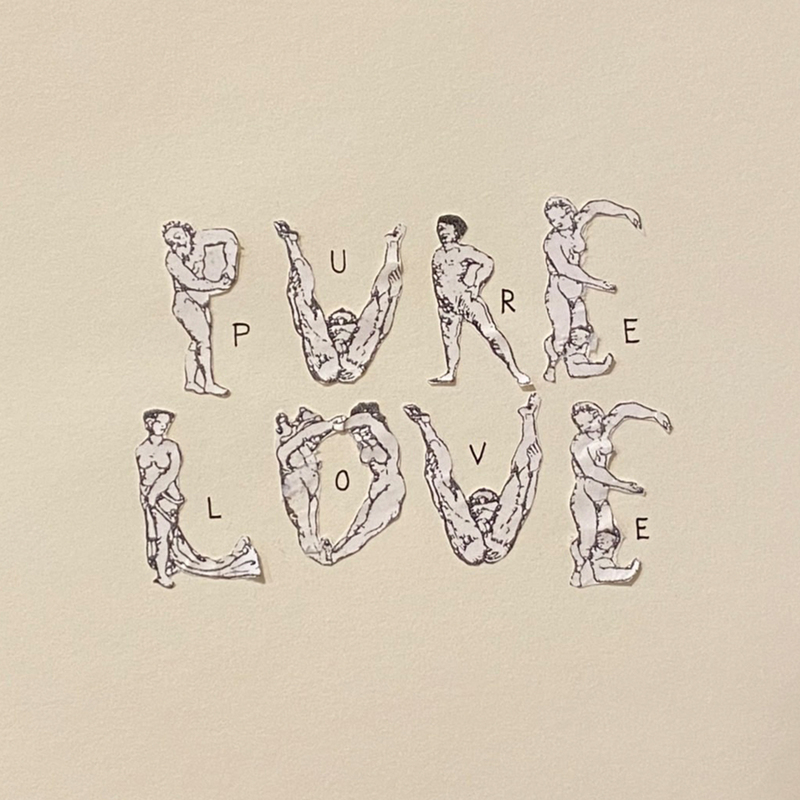 PURE
LOVE